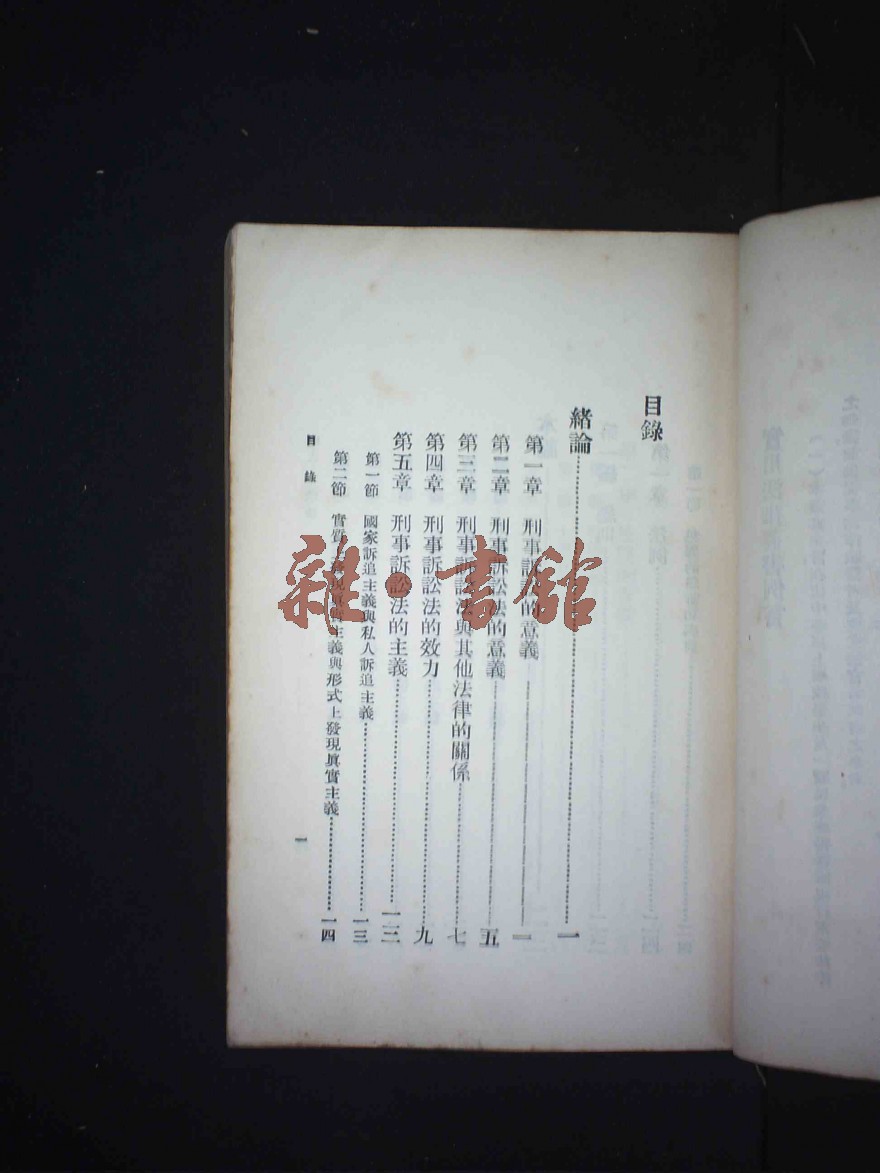 目錄
緒論……一
第一章 刑事訴訟的意義……一
第二章 刑事訴訟法的意義……五
第三章 刑事訴訟法與其他法律的關係……七
第四章 刑事訴訟法的效力……九
第五章 刑事訴訟法的主義……一三
第一節 國家訴追主義與私人訴追主義……一三
第二節 實質上發現眞實主義與形式上發現眞實主義……一四
目錄
一
雜·書館